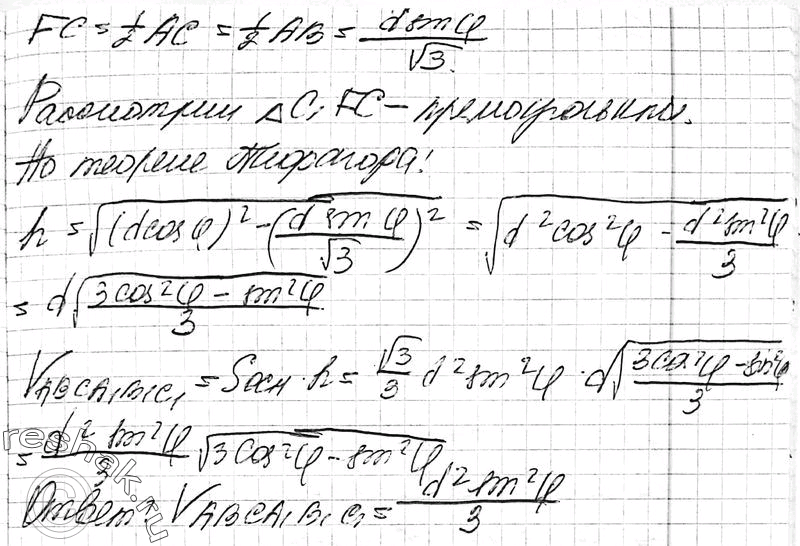 FC = 1/2 AC = 1/2 AB = d sin φ / √3.
Рассмотрим △C₁FC – прямоугольный.
По теореме Пифагора:
h = √((d cos φ)² – (d sin φ / √3)²) = √(d² cos² φ – d² sin² φ / 3)
= d√((3cos² φ – sin² φ) / 3)
V_ABCA₁B₁C₁ = Sосн · h = √3/3 d² sin² φ · d√((3cos² φ – sin² φ) / 3)
= d² sin² φ / 3 √(3cos² φ – sin² φ)
Ответ: V_ABCA₁B₁C₁ = d² sin² φ / 3
reshak.ru